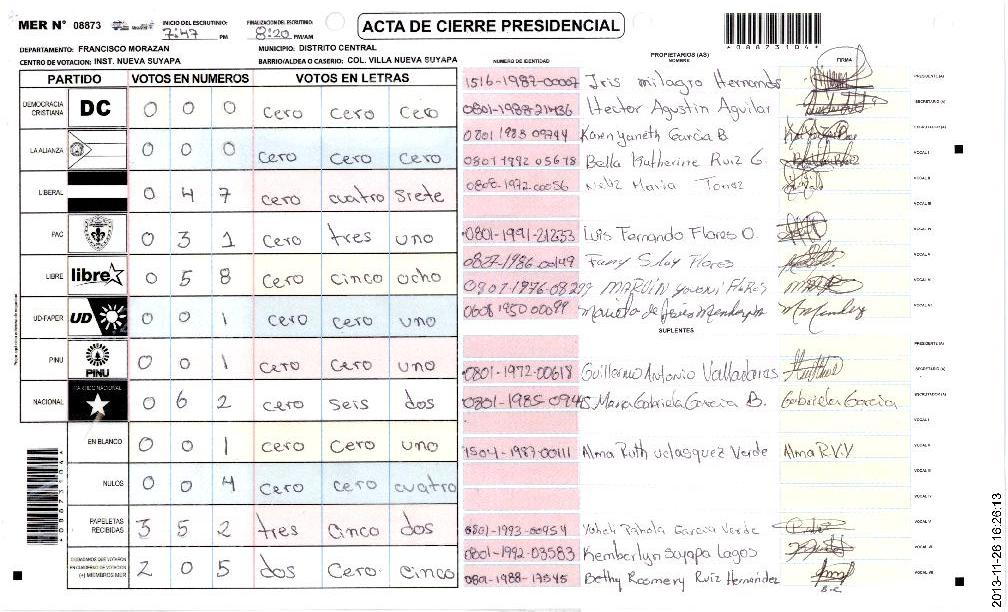 MER N° 08873
INICIO DEL ESCRUTINIO: 7:47 PM
FINALIZACION DEL ESCRUTINIO: 8:20 PM/AM
ACTA DE CIERRE PRESIDENCIAL
*08873104*
DEPARTAMENTO: FRANCISCO MORAZAN
MUNICIPIO: DISTRITO CENTRAL
CENTRO DE VOTACION: INST. NUEVA SUYAPA
BARRIO/ALDEA O CASERIO: COL. VILLA NUEVA SUYAPA
PARTIDO VOTOS EN NUMEROS VOTOS EN LETRAS
DEMOCRACIA CRISTIANA DC 0 0 0 cero cero cero
LA ALIANZA 0 0 0 cero cero cero
LIBERAL 0 4 7 cero cuatro siete
PAC 0 3 1 cero tres uno
LIBRE libre 0 5 8 cero cinco ocho
UD-FAPER UD 0 0 1 cero cero uno
PINU PINU 0 0 1 cero cero uno
NACIONAL PARTIDO NACIONAL 0 6 2 cero seis dos
EN BLANCO 0 0 1 cero cero uno
NULOS 0 0 4 cero cero cuatro
PAPELETAS RECIBIDAS 3 5 2 tres cinco dos
CIUDADANOS QUE VOTARON EN CUADERNO DE VOTACION (+) MIEMBROS MER 2 0 5 dos cero cinco
*08873104*
NUMERO DE IDENTIDAD
PROPIETARIOS (AS)
NOMBRE
FIRMA
1516-1982-00007 Iris milagro Hernandez PRESIDENTE (A)
Hector Agustin Aguilar SECRETARIO (A)
0801 1983 09744 Karen yaneth Garcia B. ESCRUTADOR (A)
0801 1992 05678 Bella Katherine Ruiz G. VOCAL I
0808-1972-00056 Maria VOCAL II
VOCAL III
0801-1991-21233 Luis Fernando Flores O. VOCAL IV
0827-1986-00149 Fany Flores VOCAL V
MARVIN Flores
Mariela de Jesus M Mendez
SUPLENTES
PRESIDENTE (A)
0801-1972-00618 Guillermo Antonio Valladares SECRETARIO (A)
0801-1985-0945 Maria Gabriela Garcia B. Gabriela Garcia ESCRUTADOR (A)
VOCAL I
1504-1987-00111 Alma Ruth velasquez Verde Alma R.V.V VOCAL II
VOCAL III
VOCAL IV
0801-1993-00954 Garcia Verde VOCAL V
0801-1992-03583 Kemberlyn suyapa Lagos VOCAL VI
0801-1988-17545 Bethy Rosmery Ruiz Hernández VOCAL VII
2013-11-26 16:26:13